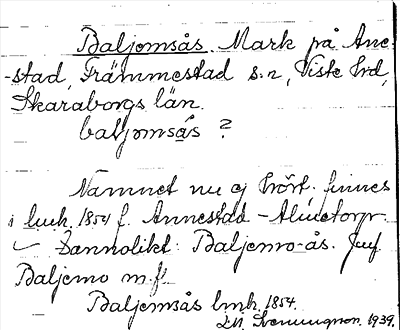 Baljomsås. Mark på Anne-
-stad, Främmestad s:n, Viste hrd,
Skaraborgs län.
baljomsås ?
Namnet nu ej hört. finnes
i lmk. 1854 f. Annestad - Almetorp.
Sannolikt: Baljemo-ås. Jmf
Baljemo m.fl.
Baljemsås lmk. 1854.
Svenungson. 1939.